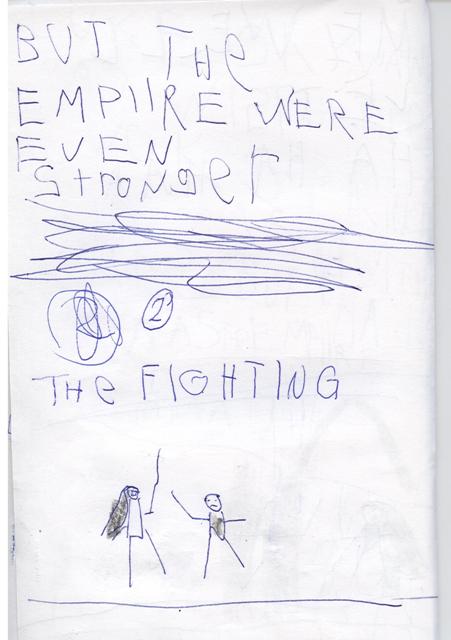 BUT THe
EMPIIRE WERE
EVEN
stronger
2
THe FIGHTING